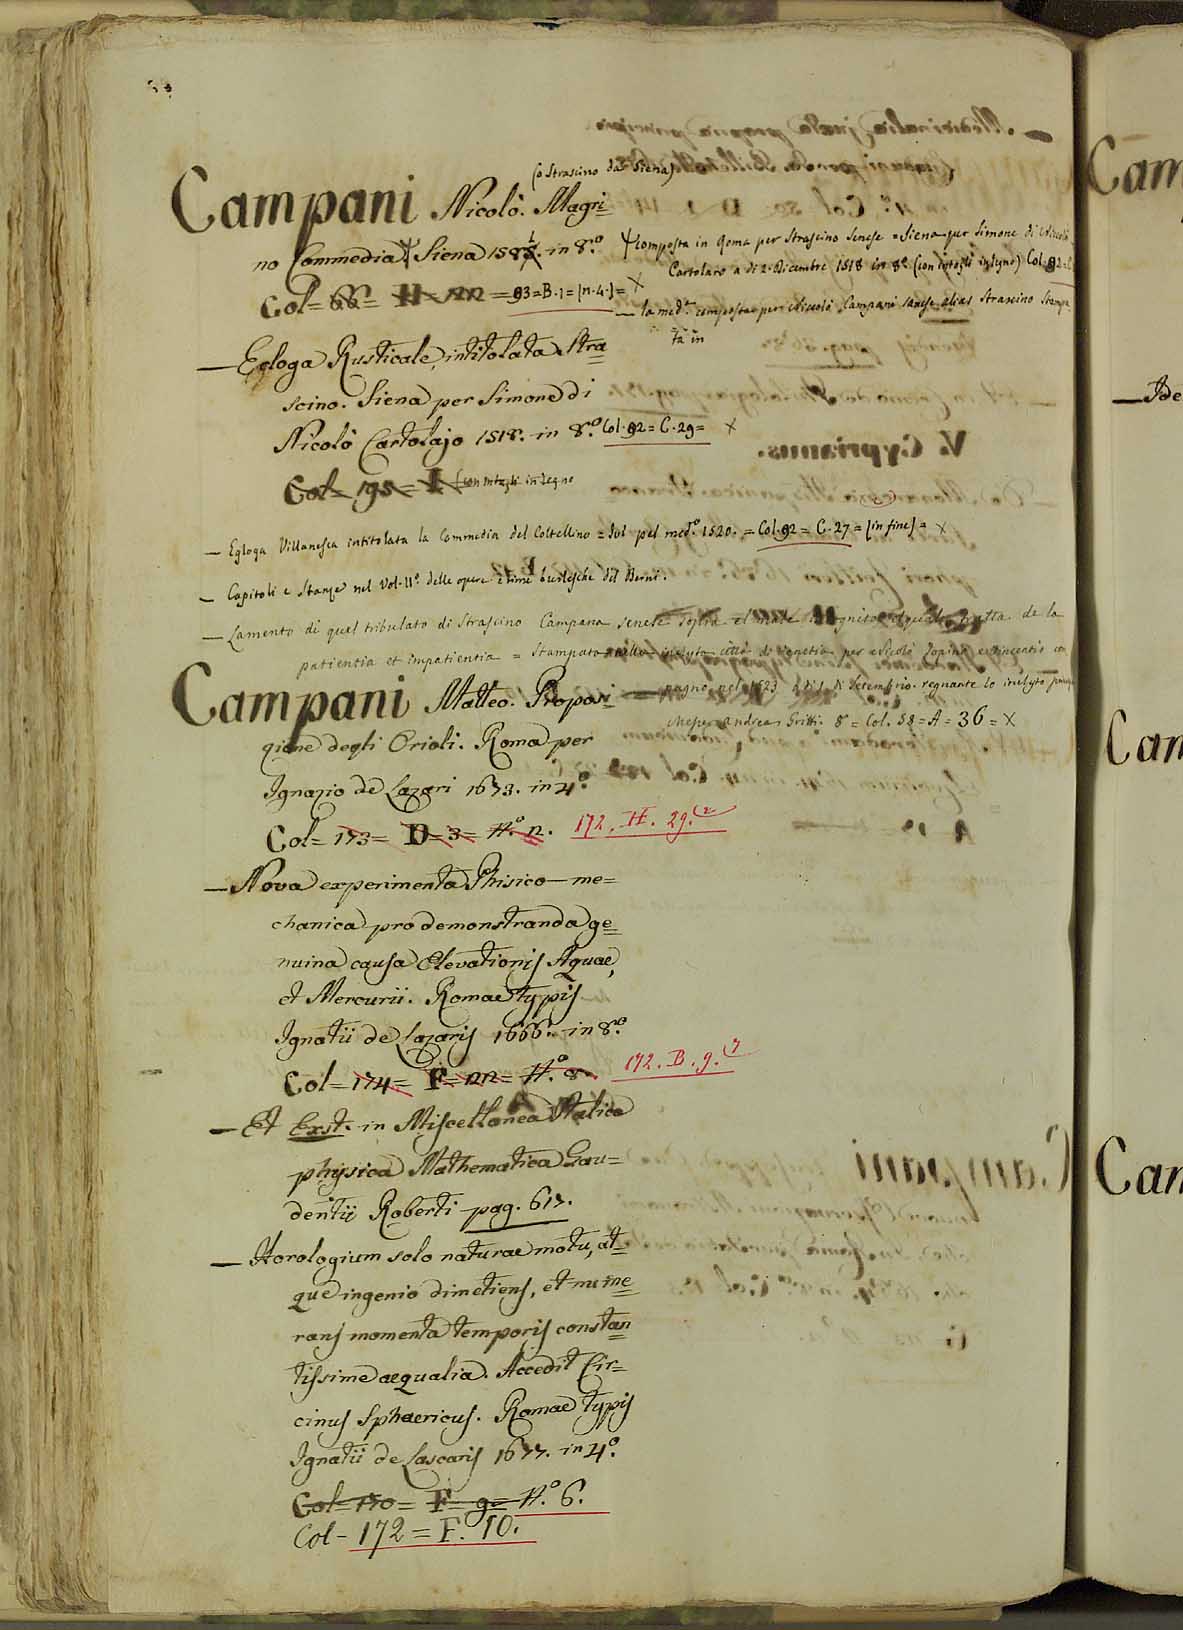 (o Strascino da Siena)
Campani Nicolò. Magri=
no Commedia Siena 158 in 8.º
composta in Roma per Strascino Senese = Siena per Simone di Niccolò
Cartolaro a di 2. Dicembre 1518 in 8.º (con intagli in legno) Col. 92
Col= 66= H= 22= 93=B.1=[n.4.]= X
— la med.ª composta per Niccolò Campani sanese alias Strascino Stampa
ta in
— Egloga Rusticale, intitolata Stra=
scino. Siena per Simone di
Nicolò Cartolajo 1518. in 8.º Col. 92= C. 29= X
Col= 195= I (con intagli in legno
— Egloga Villanesca intitolata la Commedia del Coltellino = Ivi pel med.º 1520. = Col. 92 = C. 27 = [in fine] = X
— Capitoli e Stanze nel Vol. II.º delle opere e rime burlesche del Berni.
— Lamento di quel tribulato di Strascino Campana senese sopra el male incognito el quale tratta de la
patientia et impatientia = Stampato nella inclyta città di Venetia per Nicolò Zopino e Vincentio com
pagno nel 1523 adi 1. di Setembrio. regnante lo inclyto principe
Meser Andrea Gritti. 8º = Col. 58 = A = 36 = X
Campani Matteo. Proposi=
zione degli Orioli. Roma per
Ignazio de Lazari 1673. in 4.º
Col= 173= D= 3= N.º 2. 172. H. 29. (2
— Nova experimenta Phisico-me=
chanica pro demonstranda ge=
nuina causa Elevationis Aquae,
et Mercurii. Romae typis
Ignatii de Lazaris 1666. in 8.º
Col= 174= F= 22= N.º 8. 172. B. 9. (7
— Et Exst. in Miscellanea Italica
physica Mathematica Gau=
dentii Roberti pag. 617.
— Horologium solo naturae motu, at=
que ingenio dimetiens, et nume=
rans momenta temporis constan=
tissime aequalia. Accedit Cir=
cinus Sphaericus. Romae typis
Ignatii de Lascaris 1677. in 4.º
Col= 170= F= 9= N.º 6.
Col- 172 = F. 10.
Cam
— Ide
Cam
Cam